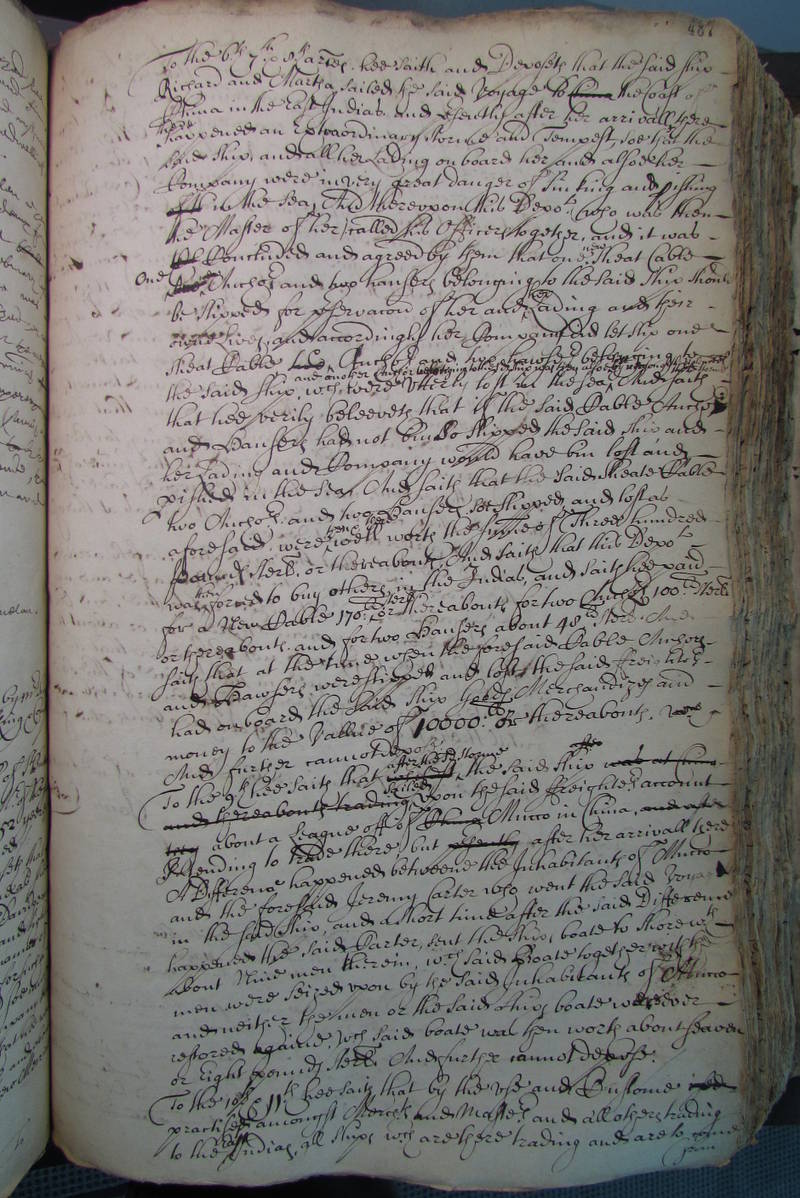 487
To the 6th 7th 8th artes hee saith and Deposeth that the said ship
Richard and Martha sailed the said voyage to China the Coast of
China in the East Indias and presently after her arrivall there
there happened an extraordinary storme and Tempest, soe that the
said ship, and all her Lading on board her, and alsoe her
Company were in very great danger of sinking and pishing
in the sea, And thereupon this Depot (who was then
the Master of her) called his Officers together, and it was
Concluded and agreed by them that one sheat Cable
One Anchor and two hausers belonging to the said ship should
be slipped for pservacon of her and Lading and their
owne Lives, and accordingly her Company did let slip one
sheat Cable Anchor and two hausers belonging to
and another Anchor belonging to the said ship
the said ship, wch were utterly lost in the sea, And saith
that hee verily beleeveth that if the said Cable Anchor
and Hausers had not bin so slipped the said ship and
her Lading and Company would have bin lost and
pished in the sea. And saith that the said sheate Cable
two Anchors and two Hausers soe slipped and lost as
aforesaid were well worth the summe of Three hundred
pounds sterl. or thereabouts, And saith that this Depot
was forced to buy others in the Indias, and saith hee paid
for a New Cable 170 or thereabouts for two Anchors 100 sterl
or thereabouts and for two Hausers about 48 ster. And
saith that at the time when the foresaid Cable Anchors
and Hawsers were slipped and lost, the said freighters
had on board the said ship Goods Merchandizes and
money to the Vallue of 10000 or thereabouts,
And further cannot depose.
after the storme
To the 9th hee saith that the said ship was at
and thereabouts trading upon the said freighters account
about a League off of Mucco in China, and after
Intending to trade there but presently after her arrivall there
A Difference happened betweene the Inhabitants of Mucco
and the foresaid Jeremy Carter who went the said voyage
in the said ship, and a short time after the said Difference
happened the said Carter, sent the ships boate to shore wth
about Nine men therein, wch said Boate together with the
men were seized upon by the said Inhabitants of Mucco
and neither the men or the said ships boate were ever
restored againe wch said boate was then worth about seaven
or eight pounds sterl. And further cannot depose.
To the 10th 11th hee saith that by the use and Custome
practised amongst Merchts and Masters and all others trading
to the East Indias, all ships wch are there trading and are to come